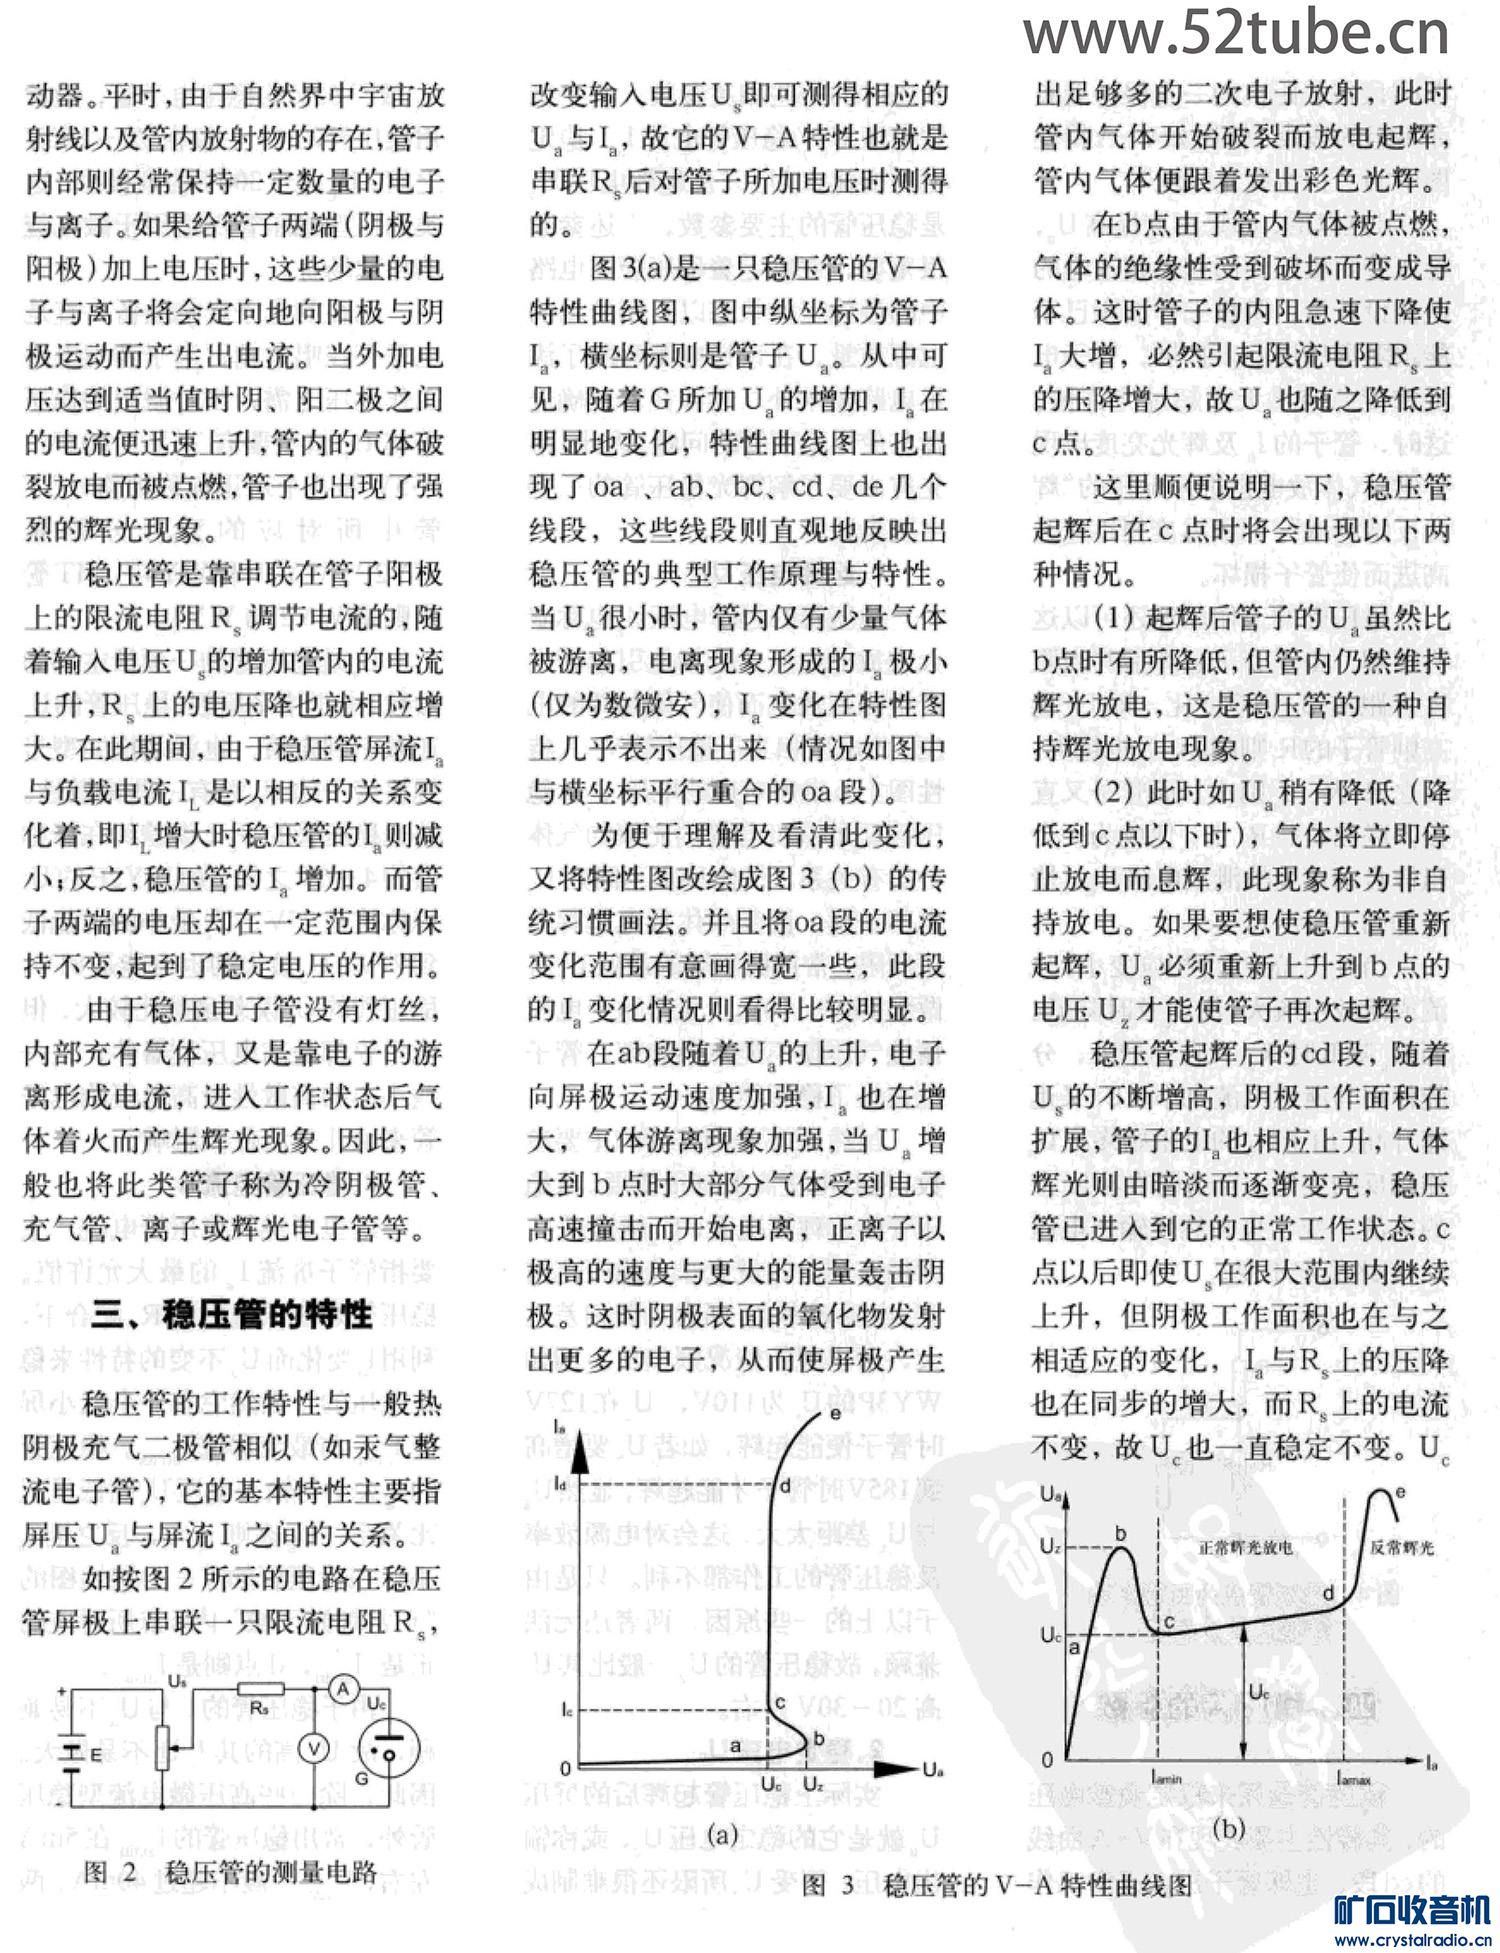 www.52tube.cn
动器。平时,由于自然界中宇宙放
射线以及管内放射物的存在,管子
内部则经常保持一定数量的电子
与离子。如果给管子两端(阴极与
阳极)加上电压时,这些少量的电
子与离子将会定向地向阳极与阴
极运动而产生出电流。当外加电
压达到适当值时阴、阳二极之间
的电流便迅速上升,管内的气体破
裂放电而被点燃,管子也出现了强
烈的辉光现象。
稳压管是靠串联在管子阳极
上的限流电阻Rs调节电流的,随
着输入电压Us的增加管内的电流
上升,Rs上的电压降也就相应增
大。在此期间,由于稳压管屏流Ia
与负载电流IL是以相反的关系变
化着,即IL增大时稳压管的Ia则减
小;反之,稳压管的Ia增加。而管
子两端的电压却在一定范围内保
持不变,起到了稳定电压的作用。
由于稳压电子管没有灯丝,
内部充有气体,又是靠电子的游
离形成电流,进入工作状态后气
体着火而产生辉光现象。因此,一
般也将此类管子称为冷阴极管、
充气管、离子或辉光电子管等。
三、稳压管的特性
稳压管的工作特性与一般热
阴极充气二极管相似(如汞气整
流电子管),它的基本特性主要指
屏压Ua与屏流Ia之间的关系。
如按图2所示的电路在稳压
管屏极上串联一只限流电阻Rs,
+
Us
Rs
A
Uc
E
V
G
-
图 2 稳压管的测量电路
改变输入电压Us即可测得相应的
Ua与Ia,故它的V-A特性也就是
串联Rs后对管子所加电压时测得
的。
图3(a)是一只稳压管的V-A
特性曲线图,图中纵坐标为管子
Ia,横坐标则是管子Ua。从中可
见,随着G所加Ua的增加,Ia在
明显地变化,特性曲线图上也出
现了oa、ab、bc、cd、de几个
线段,这些线段则直观地反映出
稳压管的典型工作原理与特性。
当Ua很小时,管内仅有少量气体
被游离,电离现象形成的Ia极小
(仅为数微安),Ia变化在特性图
上几乎表示不出来(情况如图中
与横坐标平行重合的oa段)。
为便于理解及看清此变化,
又将特性图改绘成图3(b)的传
统习惯画法。并且将oa段的电流
变化范围有意画得宽一些,此段
的Ia变化情况则看得比较明显。
在ab段随着Ua的上升,电子
向屏极运动速度加强,Ia也在增
大,气体游离现象加强,当Ua增
大到b点时大部分气体受到电子
高速撞击而开始电离,正离子以
极高的速度与更大的能量轰击阴
极。这时阴极表面的氧化物发射
出更多的电子,从而使屏极产生
Ia
e
Id
d
Ic
c
a
b
0
Uc
Uz
Ua
(a)
出足够多的二次电子放射,此时
管内气体开始破裂而放电起辉,
管内气体便跟着发出彩色光辉。
在b点由于管内气体被点燃,
气体的绝缘性受到破坏而变成导
体。这时管子的内阻急速下降使
Ia大增,必然引起限流电阻Rs上
的压降增大,故Ua也随之降低到
c点。
这里顺便说明一下,稳压管
起辉后在c点时将会出现以下两
种情况。
(1)起辉后管子的Ua虽然比
b点时有所降低,但管内仍然维持
辉光放电,这是稳压管的一种自
持辉光放电现象。
(2)此时如Ua稍有降低(降
低到c点以下时),气体将立即停
止放电而息辉,此现象称为非自
持放电。如果要想使稳压管重新
起辉,Ua必须重新上升到b点的
电压Uz才能使管子再次起辉。
稳压管起辉后的cd段,随着
Us的不断增高,阴极工作面积在
扩展,管子的Ia也相应上升,气体
辉光则由暗淡而逐渐变亮,稳压
管已进入到它的正常工作状态。c
点以后即使Us在很大范围内继续
上升,但阴极工作面积也在与之
相适应的变化,Ia与Rs上的压降
也在同步的增大,而Rs上的电流
不变,故Uc也一直稳定不变。Uc
Ua
e
b
Uz
正常辉光放电
反常辉光
d
c
Uc
a
Uc
0
Iamin
Iamax
Ia
(b)
图 3 稳压管的V-A特性曲线图
矿石收音机
www.crystalradio.cn